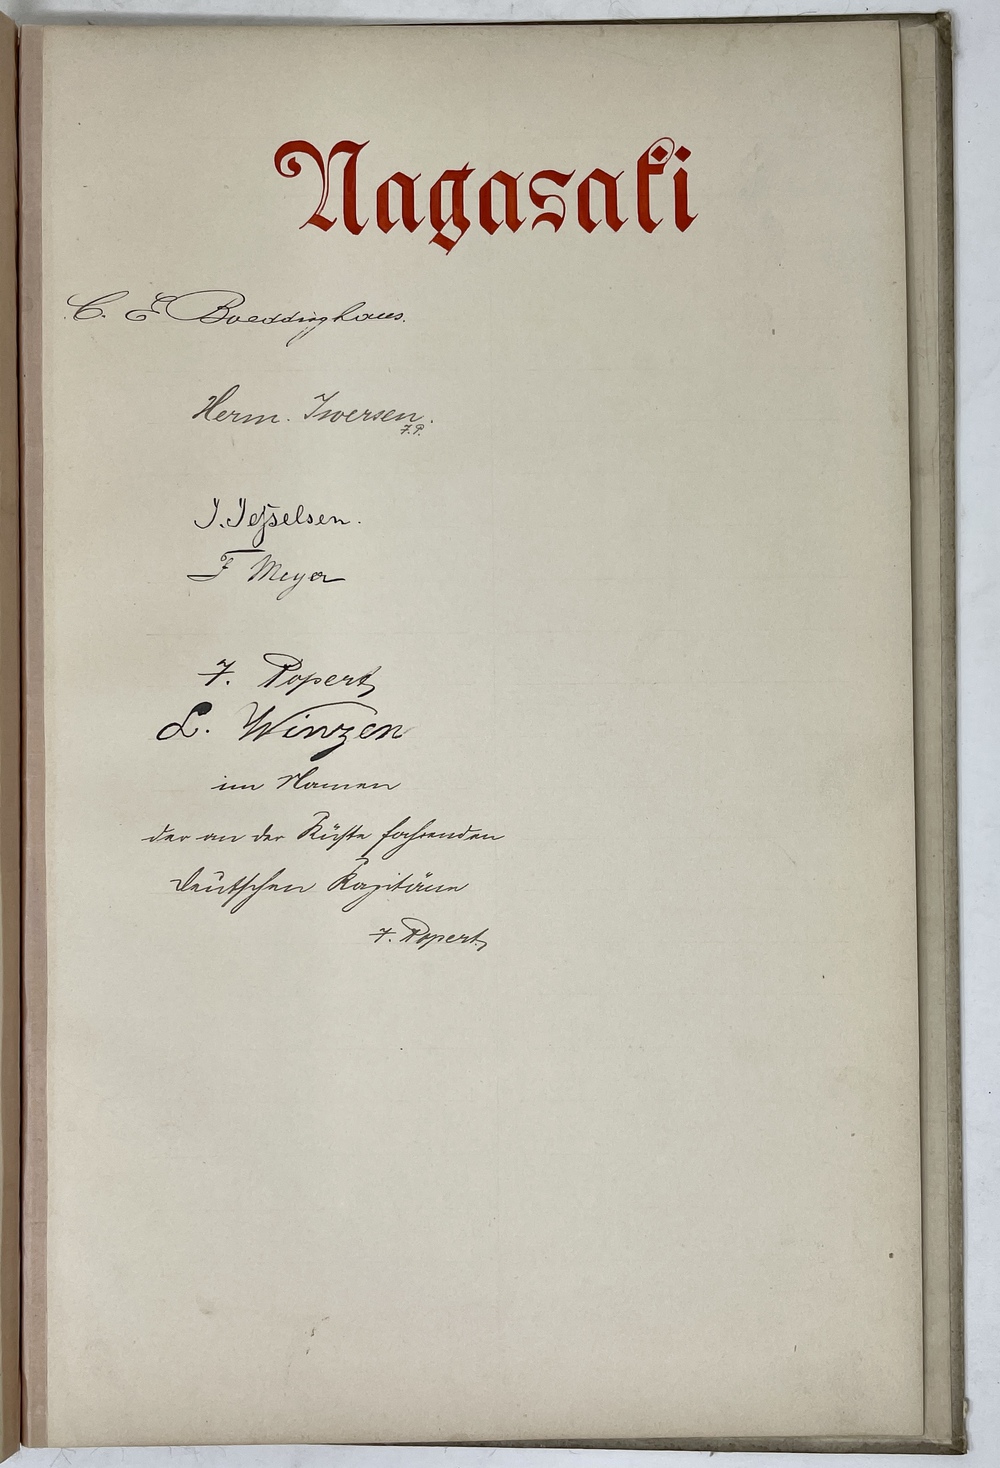 Nagasaki
C. E Boeddinghaus.
Herm. Iwersen.
F.P.
J. Jesselsen.
F Meyer
F. Popert
L. Winzen
im Namen
der an der Küste fahrenden
deutschen Kapitäne
F. Popert